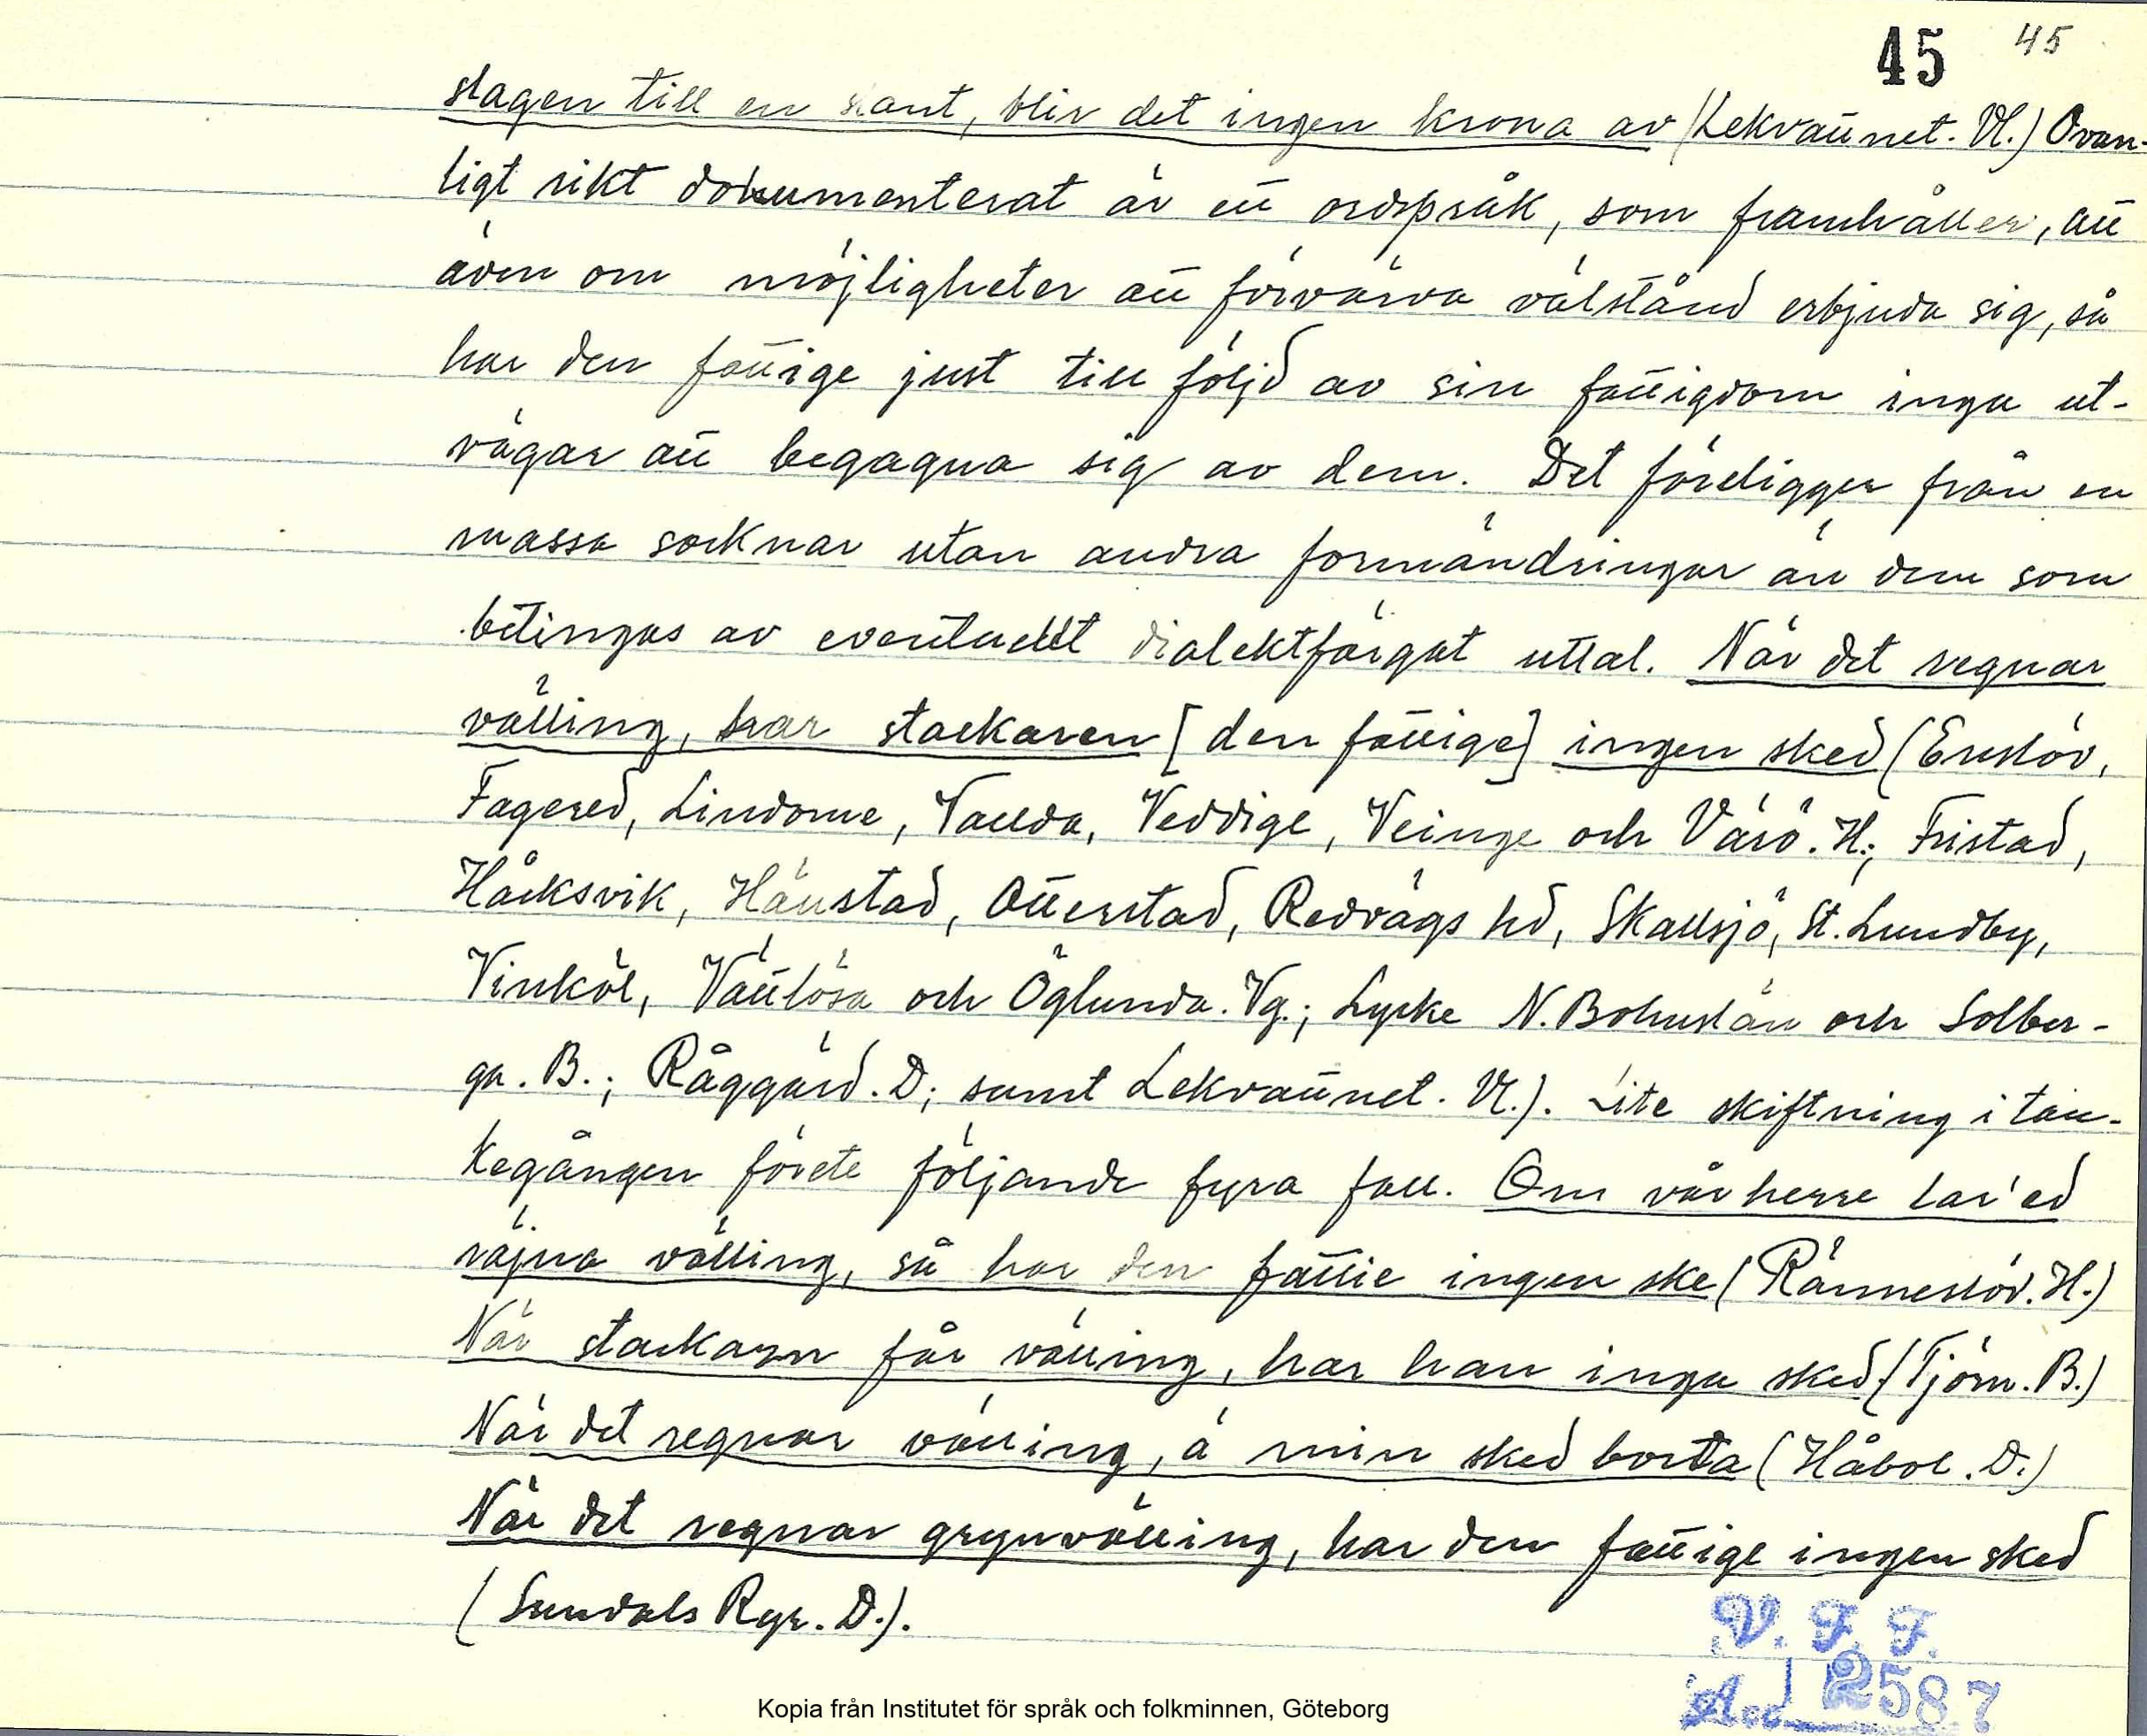 45 45
slagen till en slant, blir det ingen krona av (Lekvattnet. Vl.) Ovan-
ligt rikt dokumenterat är ett ordspråk, som framhåller, att
även om möjligheter att förvärva välstånd erbjuda sig, så
har den fattige just till följd av sin fattigdom inga ut-
vägar att begagna sig av dem. Det föreligger från en
massa socknar utan andra formändringar än dem som
betingas av eventuellt dialektfärgat uttal. När det regnar
välling, har stackaren [den fattige] ingen sked (Enslöv,
Fagered, Lindome, Vallda, Veddige, Veinge och Värö. H; Fristad,
Håcksvik, Hällstad, Otterstad, Redvägs hd, Skallsjö, St. Lundby,
Vinköl, Vättlösa och Öglunda. Vg.; Lycke N. Bohuslän och Solber-
ga. B.; Råggärd. D; samt Lekvattnet. Vl.). Lite skiftning i tan-
kegången förete följande fyra fall. Om vår herre lar' ed
räjna välling, så har den fattie ingen ske (Ränneslöv. H.)
När stackarn får välling, har han inga sked (Tjörn. B.)
När det regnar välling, ä min sked borta (Håbol. D.)
När det regnar grynvälling, har den fattige ingen sked
(Sundals Ryr. D.).
V. F. F.
Acc 2587
Kopia från Institutet för språk och folkminnen, Göteborg